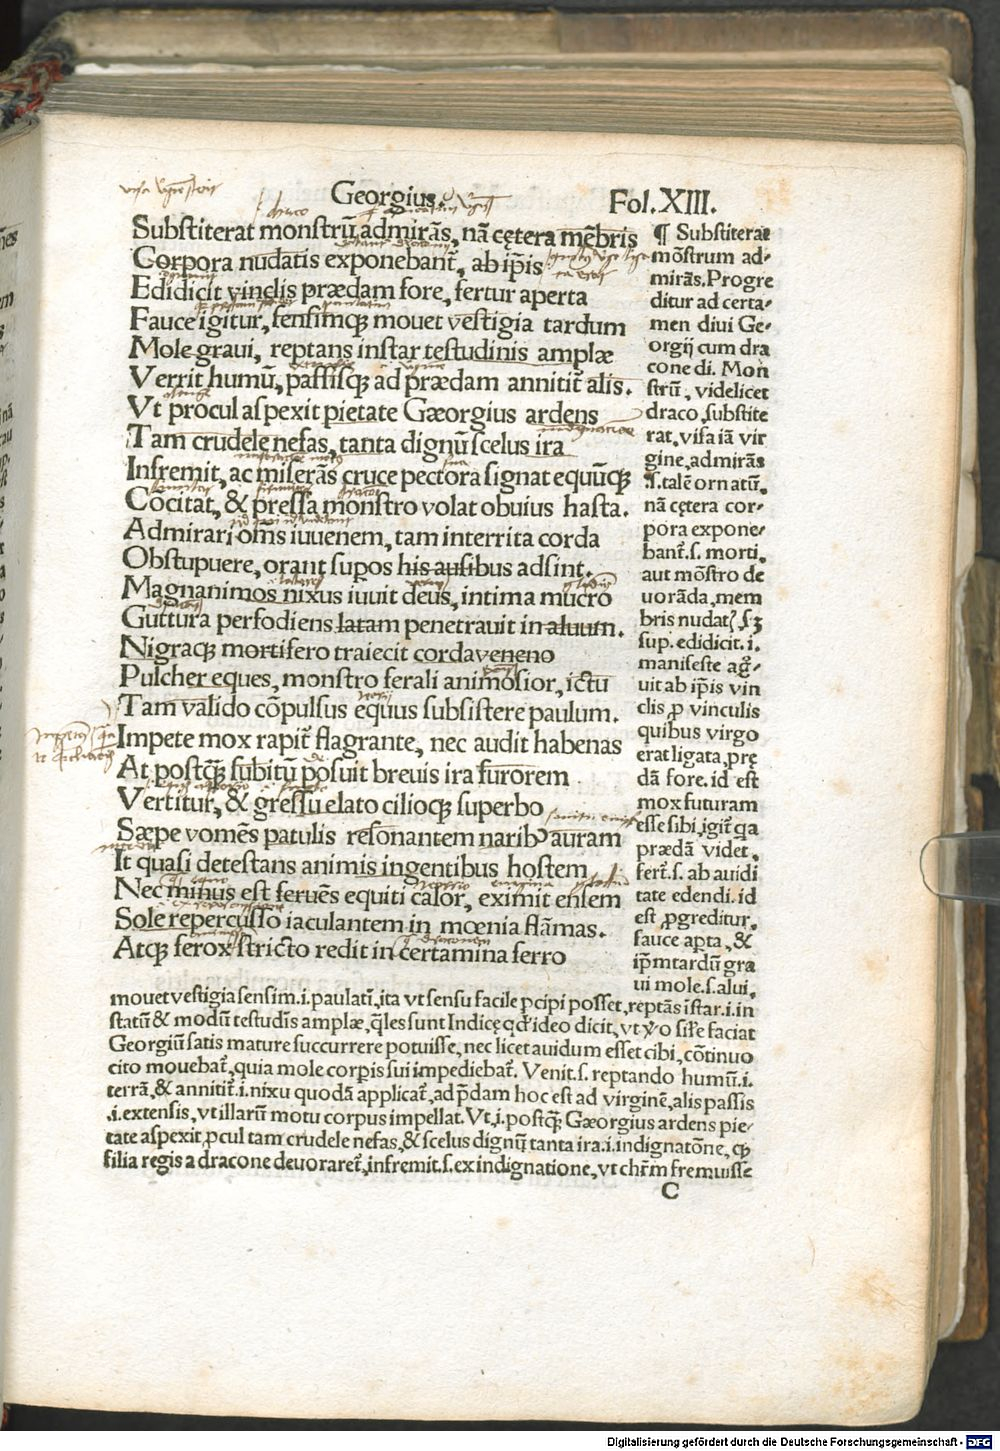 Georgius.
Fol. XIII.
Substiterat monstrū, admirās, nā cętera mēbris
Corpora nudatis exponebant̄, ab ip̄is
Edidicit vinclis prædam fore, fertur aperta
Fauce igitur, sensimqꝫ mouet vestigia tardum
Mole graui, reptans instar testudinis amplæ
Verrit humū, passisqꝫ ad prædam annitit̄ alis.
Vt procul aspexit pietate Gæorgius ardens
Tam crudele nefas, tanta dignū scelus ira
Infremit, ac miserās cruce pectora signat equūqꝫ
Cōcitat, & pressa monstro volat obuius hasta.
Admirari om̄s iuuenem, tam interrita corda
Obstupuere, orant suꝑos his ausibus adsint.
Magnanimos nixus iuuit deus, intima mucro
Guttura perfodiens latam penetrauit in aluum.
Nigraqꝫ mortifero traiecit corda veneno
Pulcher eques, monstro ferali animosior, ictu
Tam valido cōpulsus equus subsistere paulum.
Impete mox rapit̄ flagrante, nec audit habenas
At postqꝫ̄ subitū posuit breuis ira furorem
Vertitur, & gressu elato cilioqꝫ superbo
Sæpe vomēs patulis resonantem naribꝰ auram
It quasi detestans animis ingentibus hostem
Nec minus est feruēs equiti calor, eximit ensem
Sole repercusso iaculantem in mœnia flāmas.
Atqꝫ ferox stricto redit in certamina ferro
¶ Substiterat
mōstrum ad-
mirās. Progre
ditur ad certa-
men diui Ge-
orgij cum dra
cone di. Mon
strū, videlicet
draco, substite
rat, visa iā vir
gine, admirās
.s. talē ornatū,
nā cętera cor-
pora expone-
bant̄ .s. morti,
aut mōstro de
uorāda, mem
bris nudat
sup. edidicit .i.
manifeste ag̅-
uit ab ip̄is vin
clis ꝓ vinculis
quibus virgo
erat ligata, prę
dā fore. id est
mox futuram
esse sibi, igit̄ qa
prædā videt,
fert̄ .s. ab auidi
tate edendi. id
est ꝓgreditur,
fauce aꝑta, &
ip̄m tardū gra
ui mole .s. alui,
mouet vestigia sensim .i. paulatī, ita vt sensu facile ꝑcipi posset, reptās īstar .i. in
statū & modū testudīs amplæ, q̄les sunt Indicę qd' ideo dicit, vt ṽo sil'e faciat
Georgiū satis mature succurrere potuisse, nec licet auidum esset cibi, cōtinuo
cito mouebat̄, quia mole corꝑis sui impediebat̄. Venit .s. reptando humū .i.
terrā, & annitit̄ .i. nixu quodā applicat̄, ad p̄dam hoc est ad virginē, alis passis
.i. extensis, vt illarū motu corpus impellat. Vt .i. postqꝫ̄ Gæorgius ardens pie-
tate aspexit ꝓcul tam crudele nefas, & scelus dignū tanta ira .i. indignatōne, qꝫ
filia regis a dracone deuoraret̄, infremit .s. ex indignatione, vt chr̄m fremuisse
C
Digitalisierung gefördert durch die Deutsche Forschungsgemeinschaft - DFG